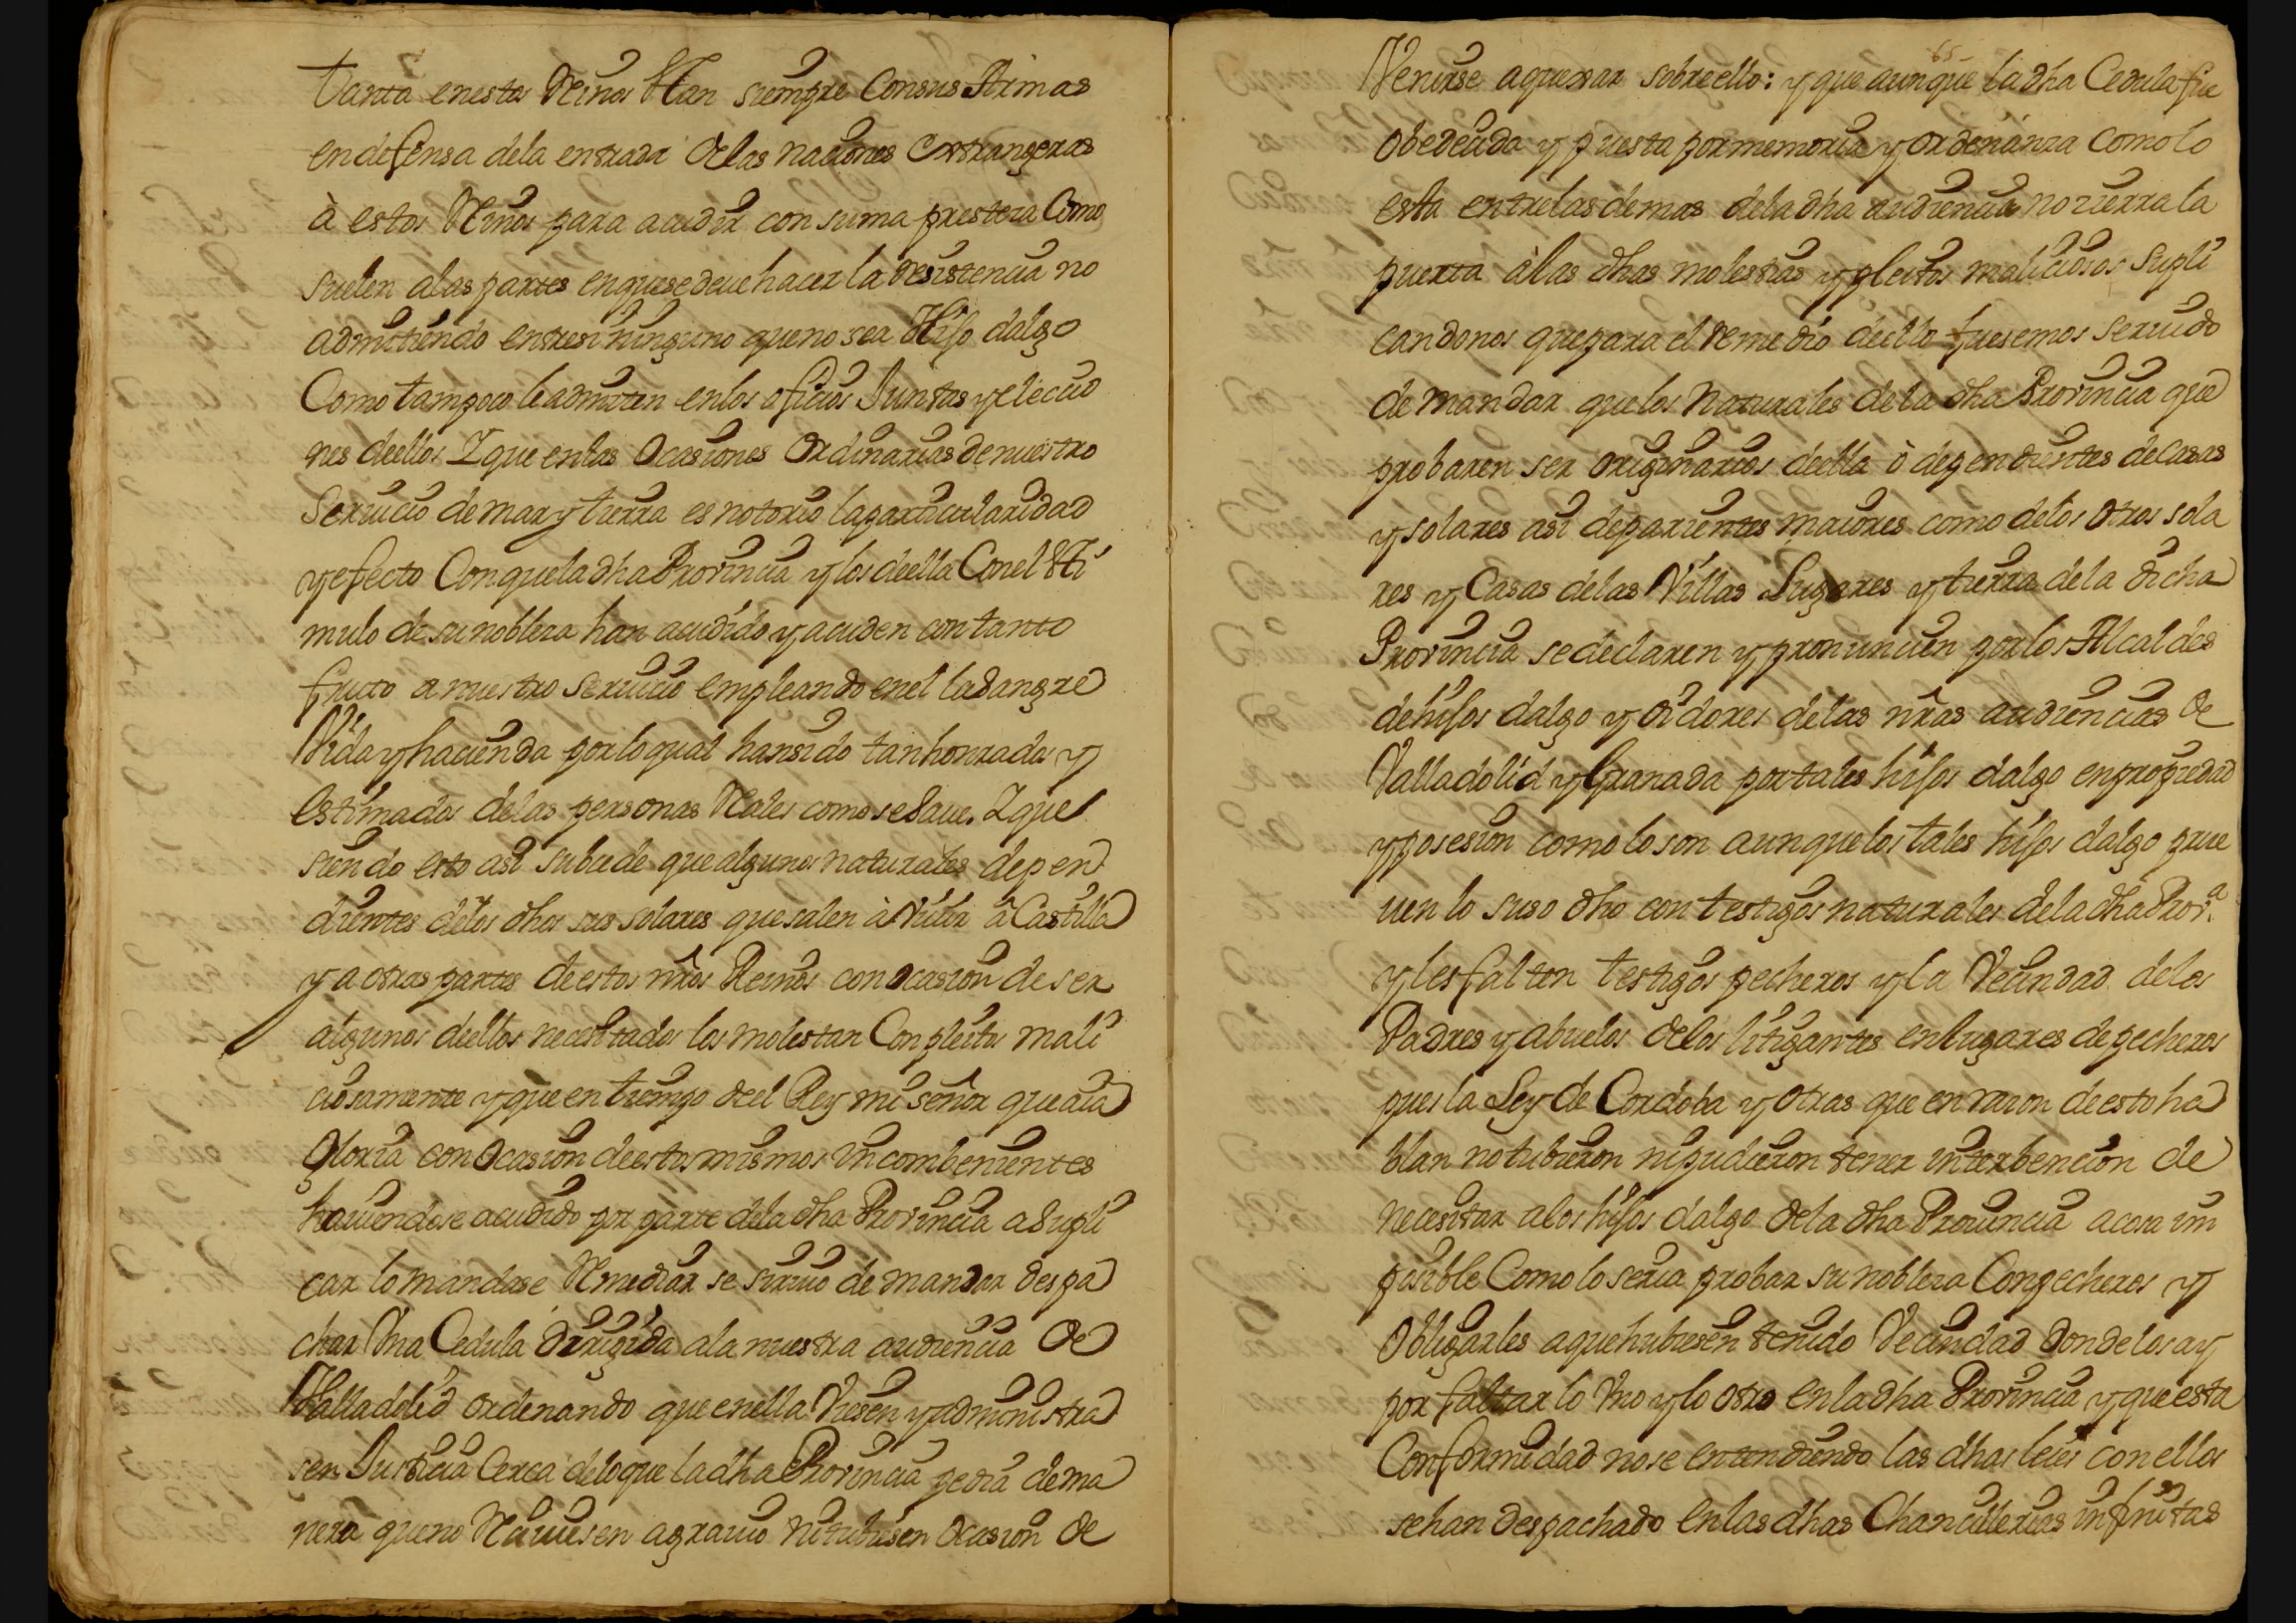 tanta en estos Reinos Han siempre Con sus Armas
en defensa de la entrada de las naciones extrangeras
à estos Reinos para acudir con suma presteza Como
suelen a las partes en que se deue hacer la resistencia no
admitiendo entre si ninguno que no sea Hijo dalgo
Como tampoco le admiten en los oficios Juntas y elecio
nes de ellos Y que en las Ocasiones Ordinarias de nuestro
Seruicio de mar y tierra es notorio la particularidad
y efecto Con que la dha Provincia y los de ella Con el Hi
mulo de su nobleza han acudido y acuden con tanto
fruto a nuestro Seruicio empleando en el la sangre
Vida y hacienda por lo qual han sido tan honrados y
estimados de las personas Reales como se saue. Y que
siendo esto asi subcede que algunos naturales depen
dientes de los dhos sus solares que salen à Viuir à Castilla
y a otras partes de estos nros Reinos con ocasion de ser
algunos de ellos necesitados los molestan Con pleitos mali
ciosamente y que en tiempo de el Rey mi señor que aia
gloria con ocasion de estos mismos incombenientes
hauiendose acudido por parte de la dha Provincia a supli
car lo mandase Remediar se siruio de mandar despa
char Vna Cedula dirigida a la nuestra audiencia de
Valladolid ordenando que en ella Viesen y administra
sen Justicia Cerca de lo que la dha Provincia pedia de ma
nera que no Reciuiesen agrauio ni tubiesen ocasion de
65
Venirse a quexar sobre ello: y que aunque la dha Cedula fue
Obedecida y puesta por memoria y ordenanza como lo
esta entre las demas de la dha audiencia no zierra la
puerta à las dhas molestias y pleitos maliciosos Supli
candonos que para el remedio de ello fuesemos seruido
de mandar que los Naturales de la dha Provincia que
probaren ser originarios de ella ò dependientes de Casas
y solares asi de parientes maiores como de los otros sola
res y Casas de las Villas Lugares y tierra de la dicha
Provincia se declaren y pronuncien por los Alcaldes
de hijos dalgo y oidores de las nras audiencias de
Valladolid y Granada por tales hijos dalgo en propiedad
y posesion como lo son aunque los tales hijos dalgo prue
uen lo suso dho con testigos naturales de la dha Prov.ª
y les falten testigos pecheros y la Vecindad de los
Padres y abuelos de los litigantes en lugares de pecheros
pues la Ley de Cordoba y otras que en razon de esto ha
blan no tubieron ni pudieron tener interbencion de
necesitar a los hijos dalgo de la dha Prouincia a cosa im
posible Como lo seria probar su nobleza Con pecheros y
Obligarles a que hubiesen tenido Vecindad donde los ay
por faltar lo Vno y lo otro en la dha Provincia y que esta
Conformidad no se entendiendo las dhas leies con ellos
se han despachado en las dhas Chancillerias infinitas